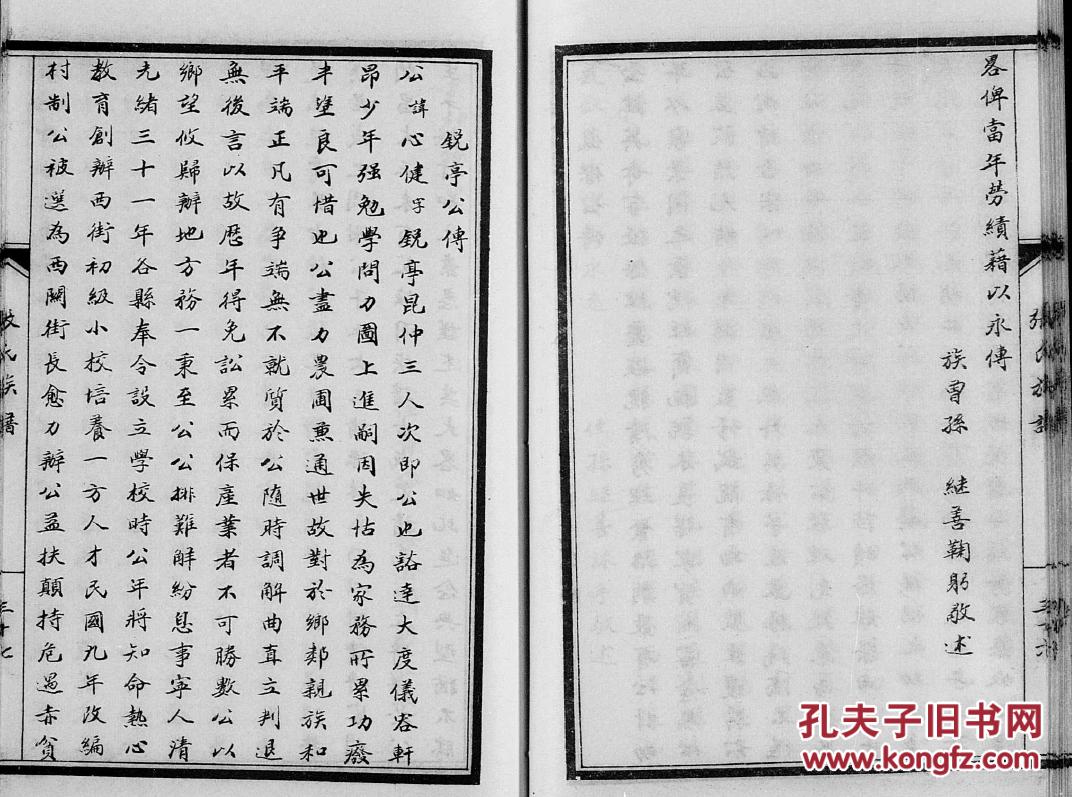 畧俾當年勞績藉以永傳
族曾孫 継善鞠躬敬述
張氏族譜
三十六
銳亭公傳
公諱心健字銳亭昆仲三人次即公也豁達大度儀容軒
昂少年强勉學問力圖上進嗣因失怙為家務所累功廢
半塗良可惜也公盡力農圃熏通世故對於鄉鄰親族和
平端正凡有爭端無不就質於公隨時調解曲直立判退
無後言以故歷年得免訟累而保產業者不可勝數公以
鄉望攸歸辦地方務一秉至公公排難解紛息事寧人清
光緒三十一年各縣奉令設立學校時公年將知命熱心
教育創辦西街初級小校培養一方人才民國九年改編
村制公被選為西関街長愈力辦公益扶顛持危過赤貧
氏族譜
三十七
孔夫子旧书网
www.kongfz.com